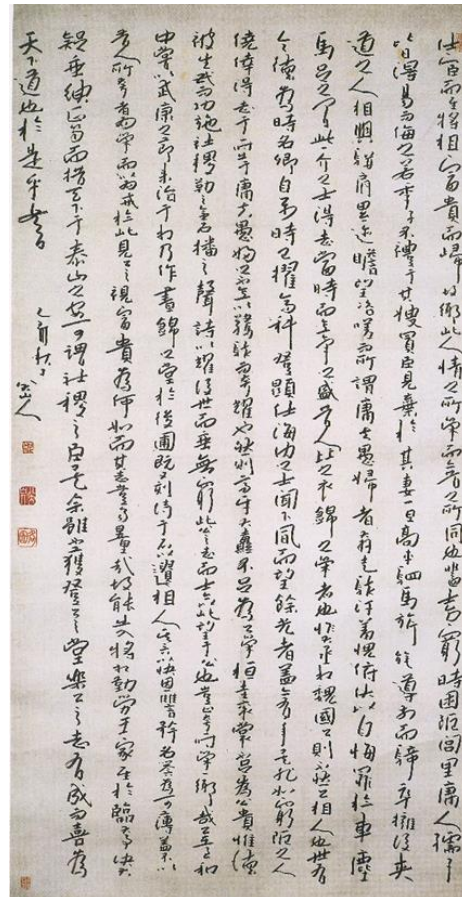 仕宦而至將相富貴而歸故鄉此人情之所榮而今昔之所同也蓋士方窮時困阨閭里庸人孺子
皆得易而侮之若季子不禮于其嫂買臣見棄於其妻一旦高車駟馬旗旄導前而騎卒擁後夾
道之人相與駢肩累迹瞻望咨嗟而所謂庸夫愚婦者奔走駭汗羞愧俯伏以自悔罪於車塵
馬足之間此一介之士得志當時而意氣之盛昔人比之衣錦之榮者也惟大丞相魏國公則不然公相人也世有
令德為時名卿自公少時已擢高科登顯仕海內之士聞下風而望餘光者蓋亦有年矣非如窮阨之人
僥倖得志于一時出于庸夫愚婦之不意以驚駭而夸耀也然則高牙大纛不足為公榮桓圭袞裳不足為公貴惟德
被生民而功施社稷勒之金石播之聲詩以耀後世而垂無窮此公之志而士亦以此望于公也豈止夸一時榮一鄉哉公在至和
中嘗以武康之節來治于相乃作晝錦之堂於後圃既又刻詩于石以遺相人其言以快恩讐矜名譽為可薄蓋不以
昔人所夸者為榮而以為戒於此見公之視富貴為何如而其志豈易量哉故能出入將相勤勞王家至於臨大事決大
議垂紳正笏而措天下于泰山之安可謂社稷之臣矣余雖不獲登公之堂樂公之志有成而喜為
天下道也於是乎書
八大山人